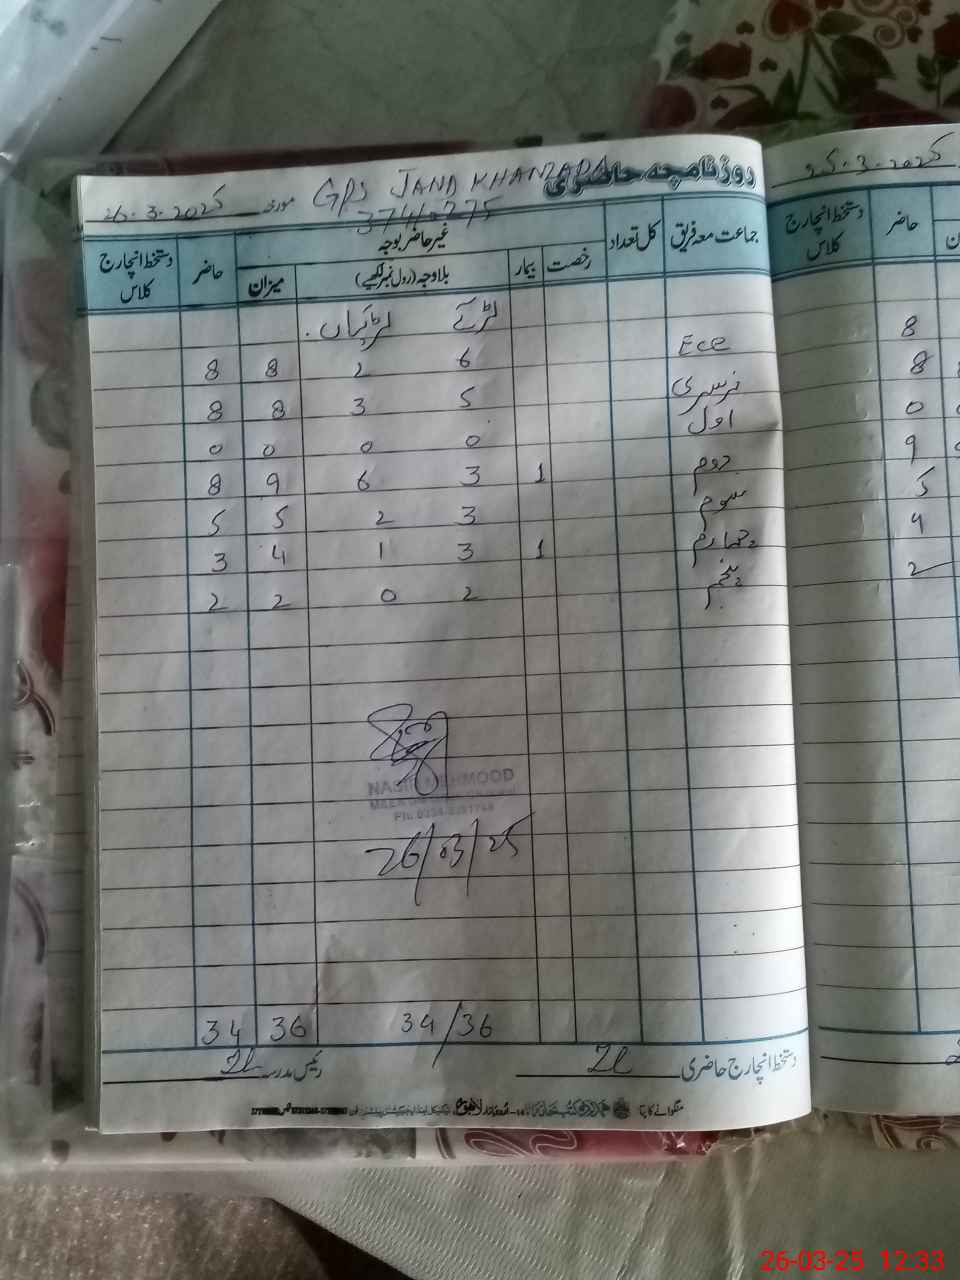 روزنامچہ حاضری
GPS JAND KHANZADA
مورخہ 26-3-2025
37410275
جماعت معہ فریق کل تعداد غیر حاضر بوجہ حاضر دستخط انچارج کلاس
رخصت بیمار بلاوجہ (رول نمبر لکھیے) میزان
لڑکے لڑکیاں
Ece 6 2 8 8
نرسری 5 3 8 8
اول 0 0 0 0
دوم 1 3 6 9 8
سوم 3 2 5 5
چہارم 1 3 1 4 3
پنجم 2 0 2 2
NASIR MEHMOOD
26/03/25
34/36 36 34
دستخط انچارج حاضری
رئیس مدرسہ
منگوانے کا پتا
25-3-2025
حاضر دستخط انچارج کلاس
8
8
0
9
5
4
2
26-03-25 12:33